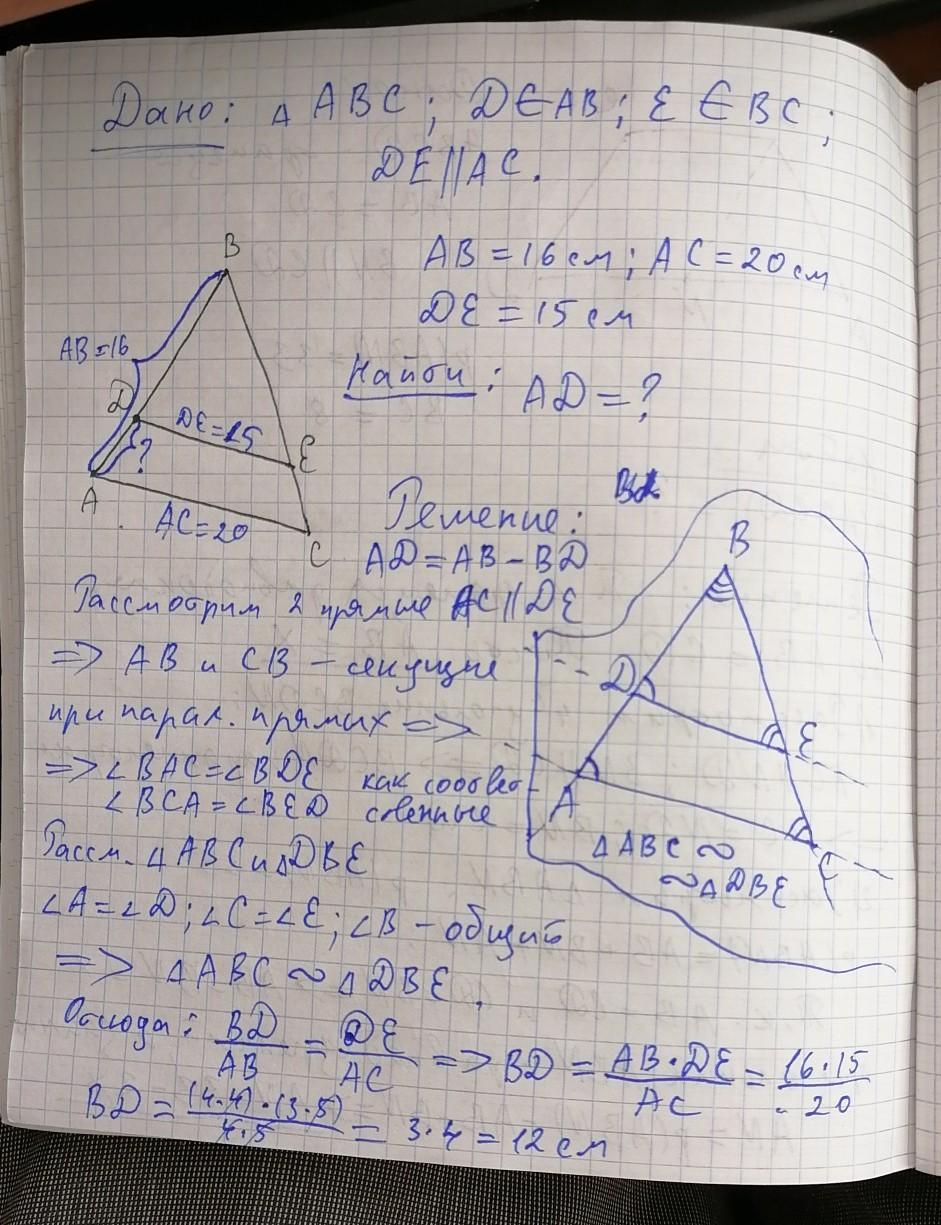 Дано: △ ABC; D∈AB; E∈BC;
DE||AC.
B
AB=16
D
DE=15
E
?
A
AC=20
C
AB=16 см; AC=20 см
DE=15 см
Найти: AD=?
Решение:
AD=AB-BD
Рассмотрим 2 прямые AC||DE
=> AB и CB - секущие
при парал. прямых =>
=> ∠BAC=∠BDE как соответ
∠BCA=∠BED ственные
Рассм. △ABC и △DBE
∠A=∠D; ∠C=∠E; ∠B - общий
=> △ABC ∾ △DBE.
B
D
E
A
C
△ABC ∾
∾△DBE
Отсюда: BD/AB = DE/AC => BD = AB·DE/AC = 16·15/20
BD = (4·4)·(3·5)/4·5 = 3·4 = 12 см